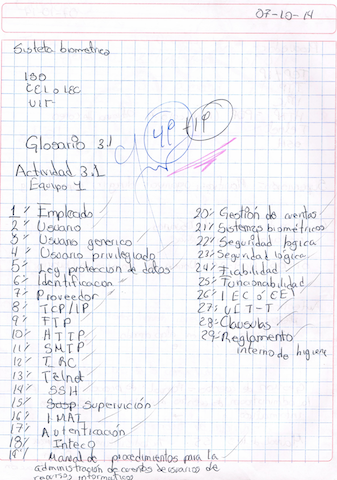 07-10-14
Sistema biometrico
ISO
CEI o IEC
UIT
4P +1P
Glosario 3.1
Actividad 3.1
Equipo 1
1% Empleado
2% Usuario
3% Usuario generico
4% Usuario privilegiado
5% Ley proteccion de datos
6% Identificacion
7% Proveedor
8% TCP/IP
9% FTP
10% HTTP
11% SMTP
12% IRC
13% Telnet
14% SSH
15% Supervición
16% IMAP
17% Autenticación
18% Inteco
19% Manual de procedimientos para la
administracion de cuentas de usuarios de
recursos informaticos
20% Gestión de cuentas
21% Sistemas biometricos
22% Seguridad logica
23% Seguridad logica
24% Fiabilidad
25% Funcionabilidad
26% IEC ó CEI
27% UIT-T
28% Clausulas
29% Reglamento
interno de higiene